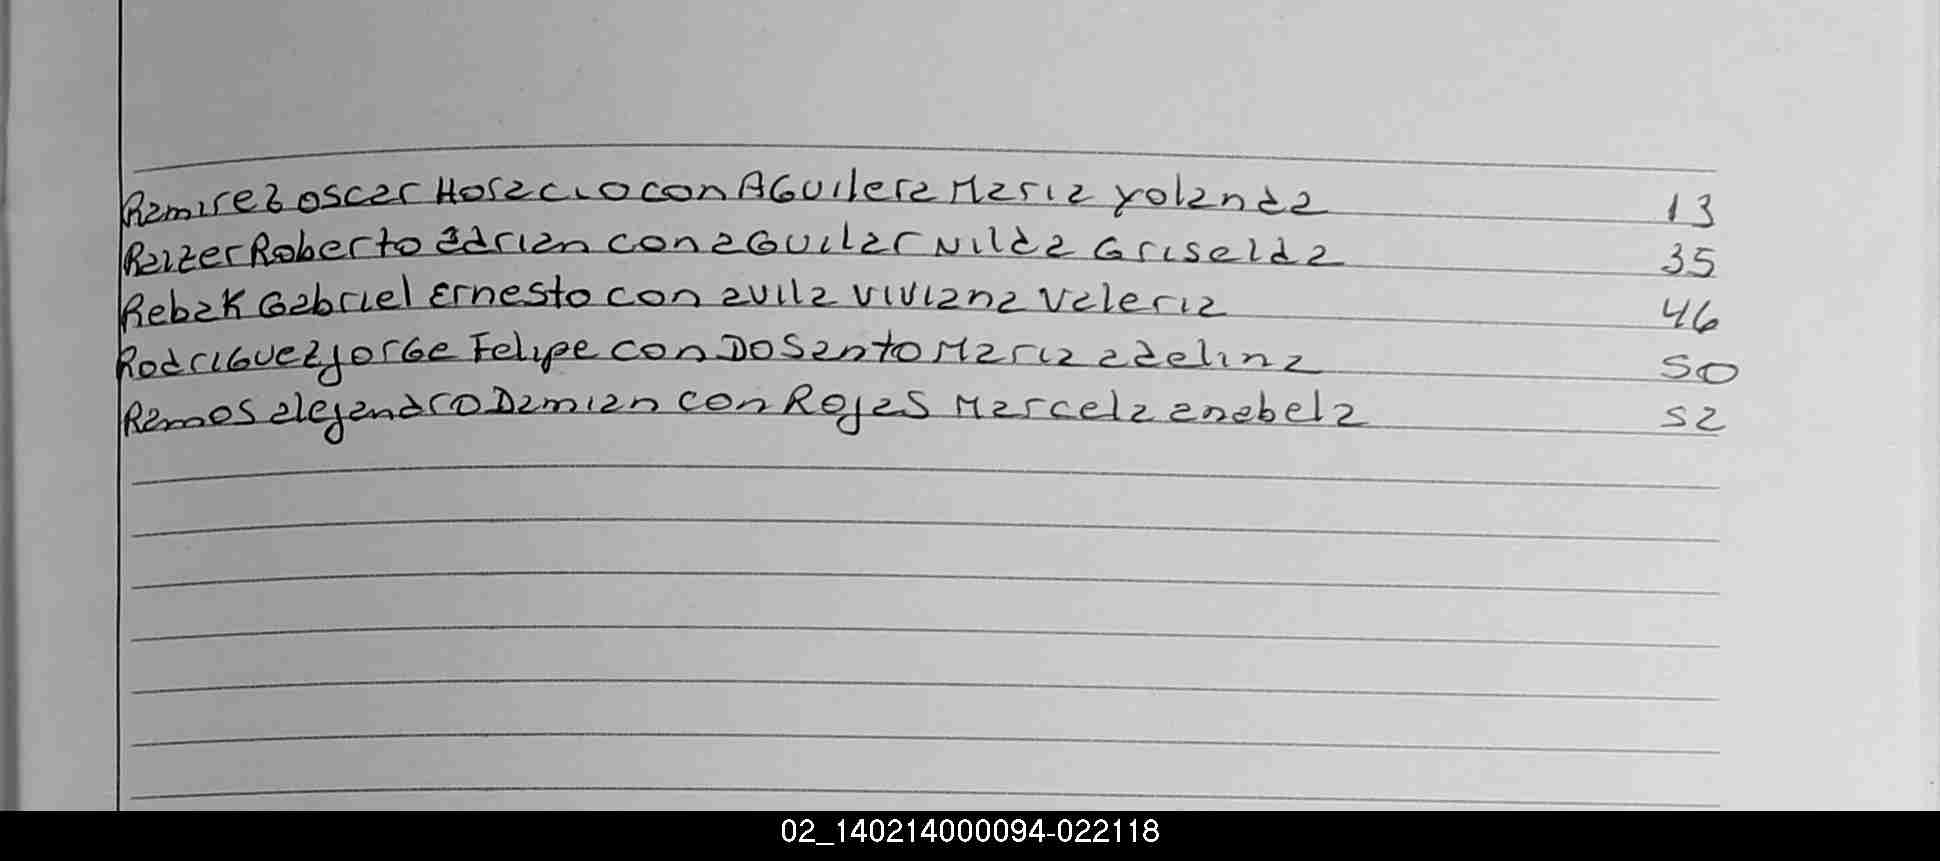 Ramirez Oscar Horacio con Aguilera Maria Yolanda 13
Raizer Roberto Adrian con Aguilar Nilda Griselda 35
Rebak Gabriel Ernesto con Avila Viviana Valeria 46
Rodriguez Jorge Felipe con Do Santo Maria Adelina 50
Ramos Alejandro Damian con Rojas Marcela Anabela 52
02_140214000094-022118